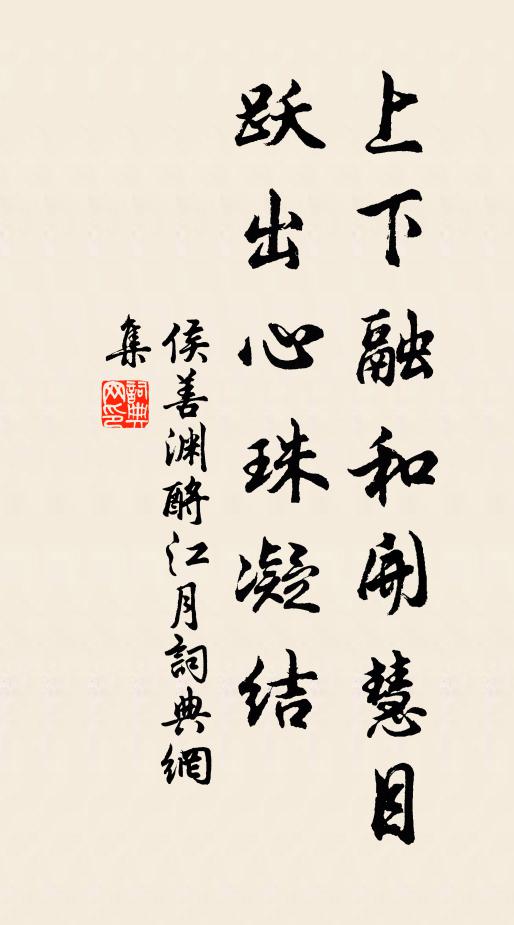 上下融和開慧目
跃出心珠凝结
侯善渊酹江月詞典網
集
詞典
网印